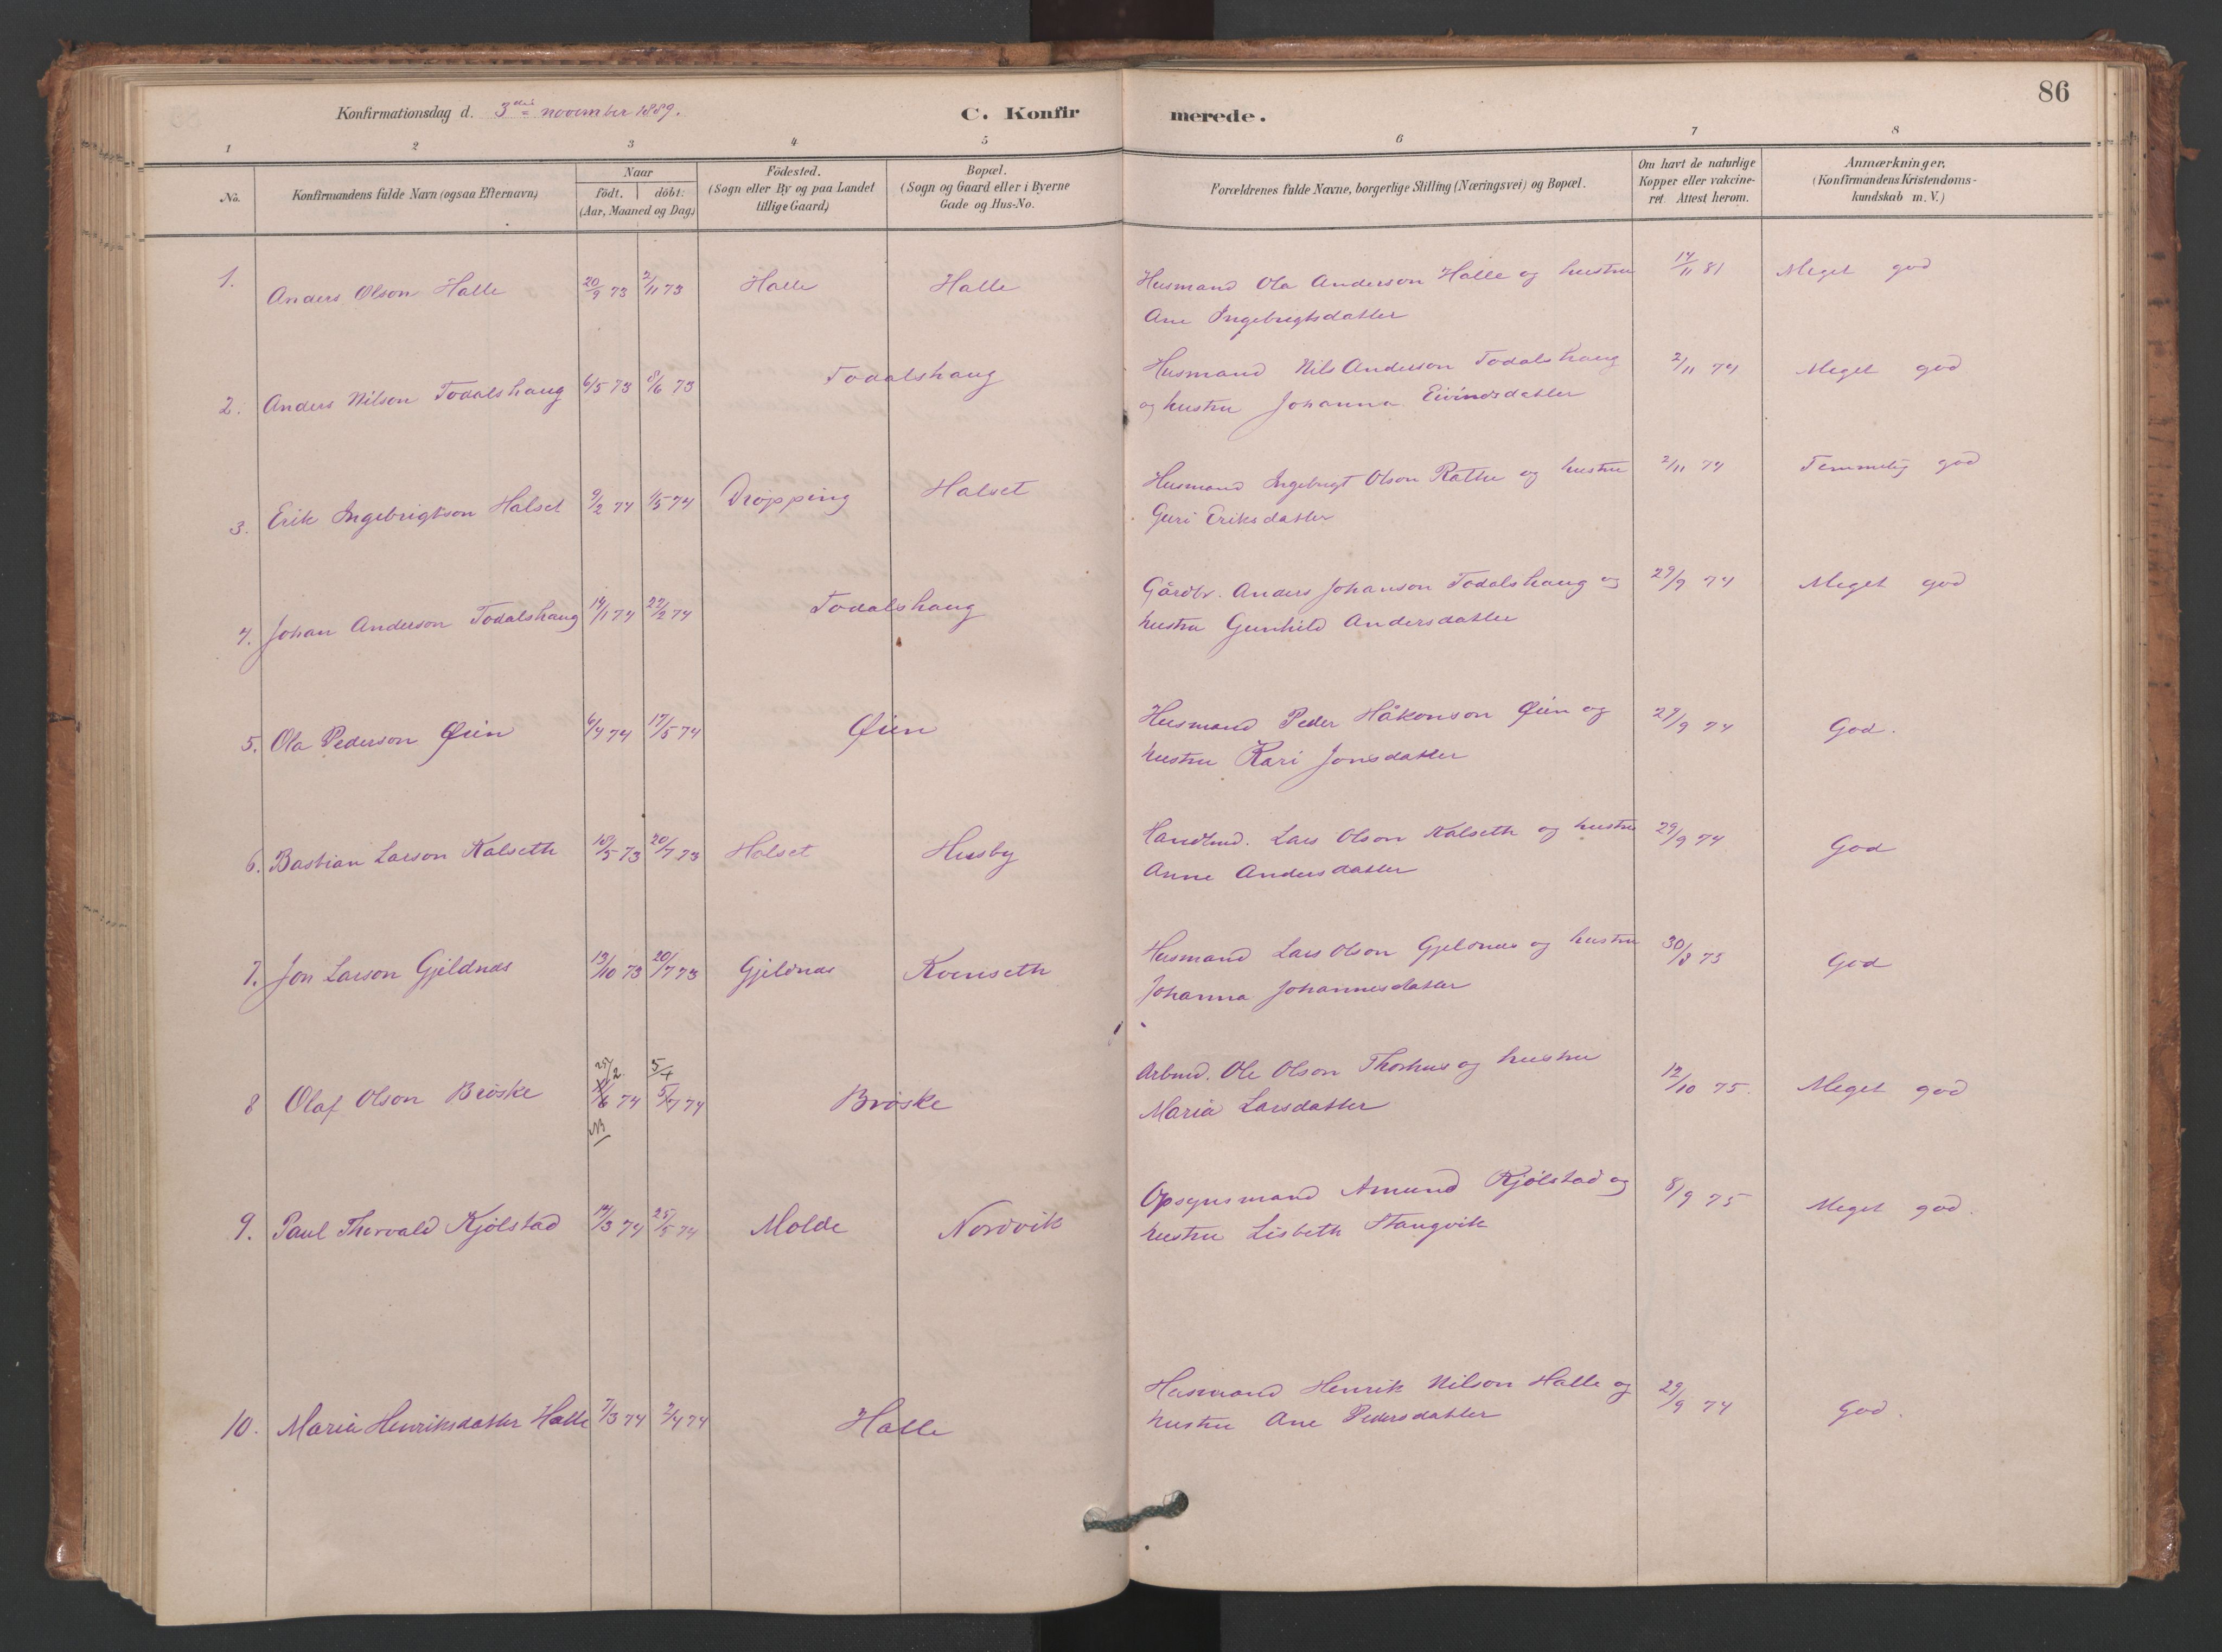 86
Konfirmationsdag d. 3die november 1889. C. Konfirmerede.
1 2 3 4 5 6 7 8
No. Konfirmandens fulde Navn (ogsaa Efternavn) Naar født. døbt: (Aar, Maaned og Dag) Fødested. (Sogn eller By og paa Landet tillige Gaard) Bopæl. (Sogn og Gaard eller i Byerne Gade og Hus-No. Forældrenes fulde Navne, borgerlige Stilling (Næringsvei) og Bopæl. Om havt de naturlige Kopper eller vakcineret. Attest herom. Anmærkninger. (Konfirmandens Kristendomskundskab m. V.)
1. Anders Olson Halle 20/9 73 2/11 73 Halle Halle Husmand Ola Anderson Halle og hustru 14/11 81 Meget god
Ane Ingebrigtsdatter
2. Anders Nilson Todalshaug 6/5 73 8/6 73 Todalshaug Husmand Nils Anderson Todalshaug 2/11 74 Meget god
og hustru Johanna Eivindsdatter
3. Erik Ingebrigtson Halset 9/2 74 1/5 74 Drøpping Halset Husmand Ingebrigt Olson Rathe og hustru 2/11 74 Temmelig god
Guri Eriksdatter
4. Johan Anderson Todalshaug 14/1 74 22/2 74 Todalshaug Gårdbr. Anders Johanson Todalshaug og 29/9 74 Meget god
hustru Gunhild Andersdatter
5. Ola Pederson Øien 6/4 74 17/5 74 Øien Husmand Peder Håkonson Øien og 29/9 74 God.
hustru Kari Jonsdatter
6. Bastian Larson Kalseth 18/5 73 20/7 73 Halset Husby Handlmd. Lars Olson Kalseth og hustru 29/9 74 God
Anne Andersdatter
7. Jon Larson Gjeldnæs 13/10 73 20/7 73 Gjeldnæs Kvenseth Husmand Lars Olson Gjeldnæs og hustru 30/8 75 God
Johanna Johannesdatter
25/2. 5/4
8 Olaf Olson Brøske 74 5/7 74 Brøske Arbmd. Ole Olson Thorhus og hustru 12/10 75. Meget god
NB
Maria Larsdatter
9. Paul Thorvald Kjølstad 14/3 74 25/5 74 Molde Nordvik Opsynsmand Amund Kjølstad og 8/9 75 Meget god.
hustru Lisbeth Stangvik
10. Maria Henriksdatter Halle 7/3 74 2/4 74 Halle Husmand Henrik Nilson Halle og 29/9 74 God.
hustru Ane Pedersdatter